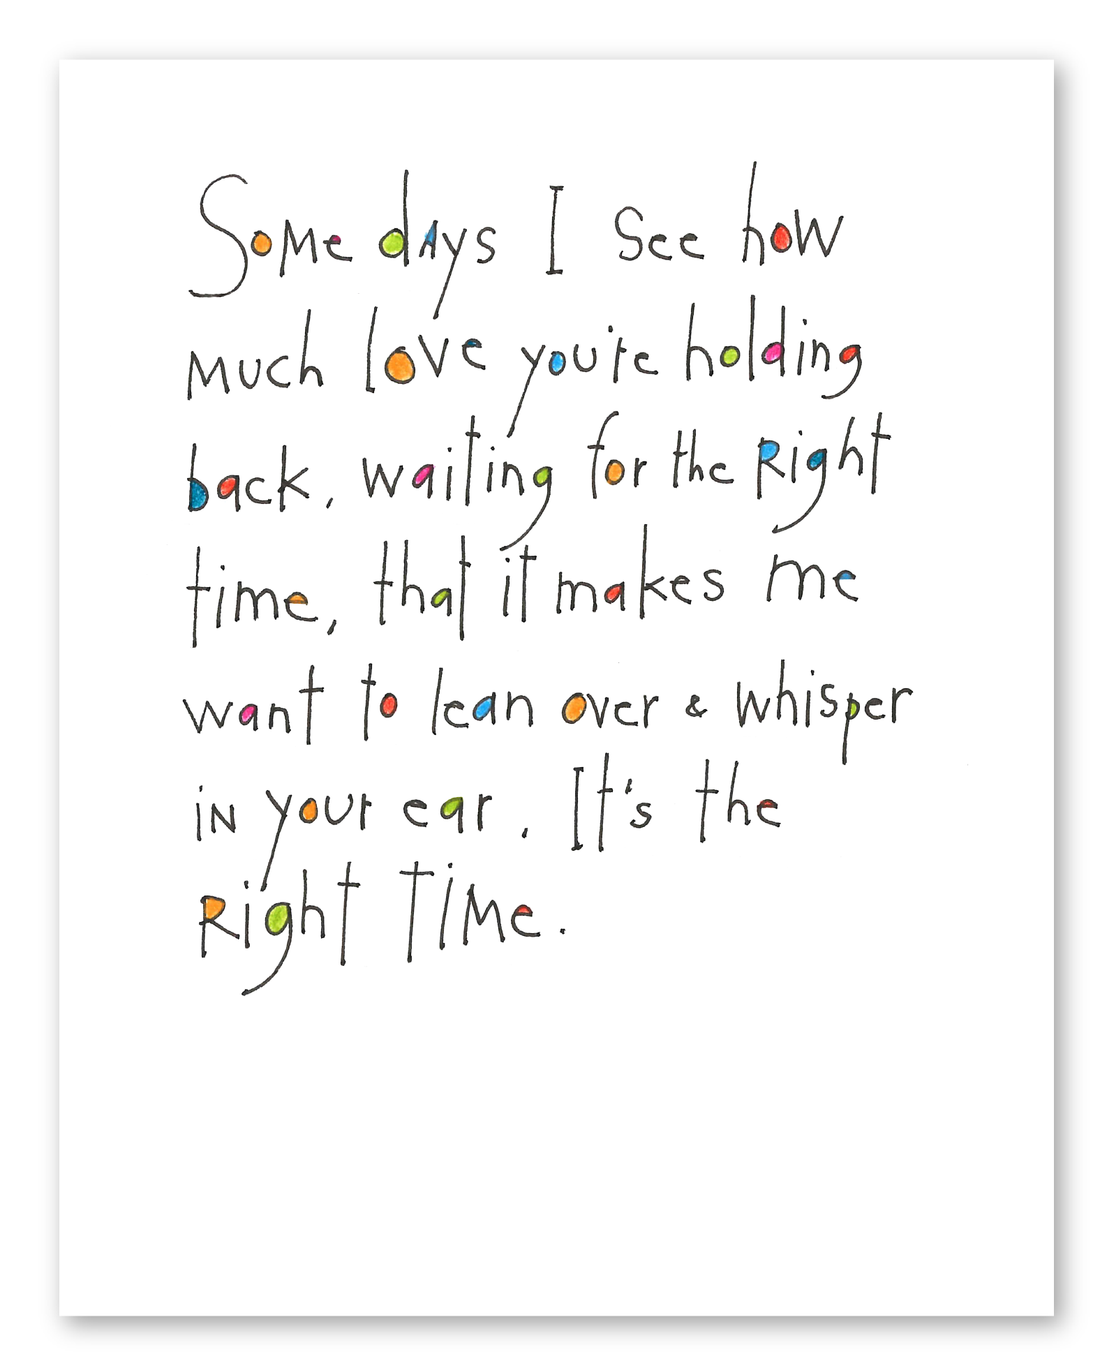 Some days I See how
much love you're holding
back, waiting for the Right
time, that it makes me
want to lean over & whisper
in your ear, It's the
Right Time.